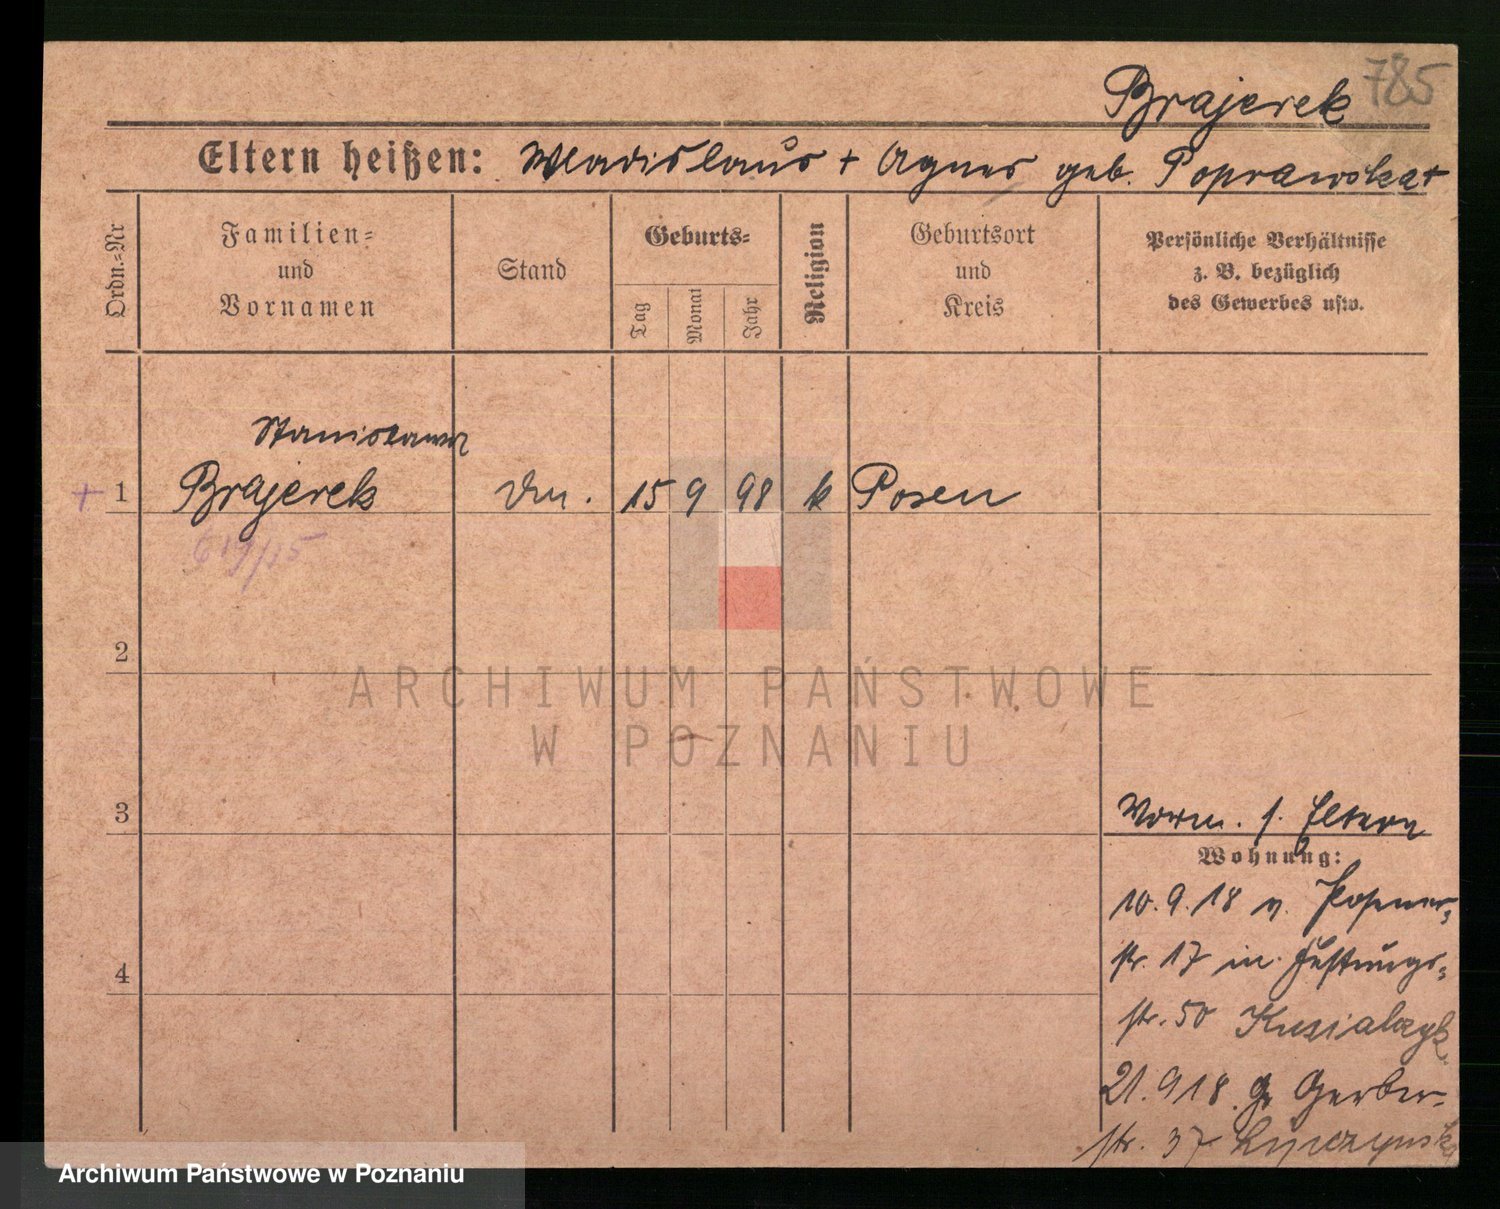 785
Brajerek
Eltern heißen: Wladislaus + Agnes geb. Poprawska +
Ordn.-Nr
Familien-
und
Vornamen
Stand
Geburts-
Tag
Monat
Jahr
Religion
Geburtsort
und
Kreis
Persönliche Verhältnisse
z. B. bezüglich
des Gewerbes usw.
Stanislawa
+ 1 Brajerek 15 9 98 k Posen
2
ARCHIWUM PAŃSTWOWE
W POZNANIU
3
Vorm. s. Eltern
Wohnung:
10.9.18 v. Posener-
str. 17 in Festungs-
str. 50
4
21.9.18 Gerber-
str. 37
Archiwum Państwowe w Poznaniu